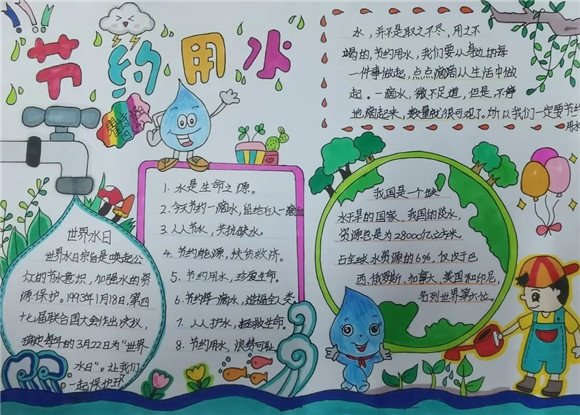 节约用水
水，并不是取之不尽，用之不
竭的，节约用水，我们要从身边的每
一件事做起，点点滴滴从生活中做
起。一滴水，微不足道，但是，不停
地滴起来，数量就很可观了。所以我们一定要节约
用水
世界水日
世界水日宗旨是唤起公
众的节水意识，加强水的资
源保护。1993年1月18日，第四
十七届联合国大会作出决议，
确定每年的3月22日为“世界
水日”。让我们
一起保护
1. 水是生命之源。
2. 今天节约一滴水，留给后人一滴血
3. 人人节水，共抗缺水。
4. 节约能源，扶贫救济。
5. 节约用水，珍爱生命。
6. 节约每一滴水，造福全人类。
7. 人人护水，拯救生命。
8. 节约用水，浪费可耻
我国是一个缺
水严重的国家，我国的淡水
资源总量为28000亿立方米，
占全球水资源的6%，仅次于巴
西、俄罗斯、加拿大、美国和印尼，
名列世界第六位。